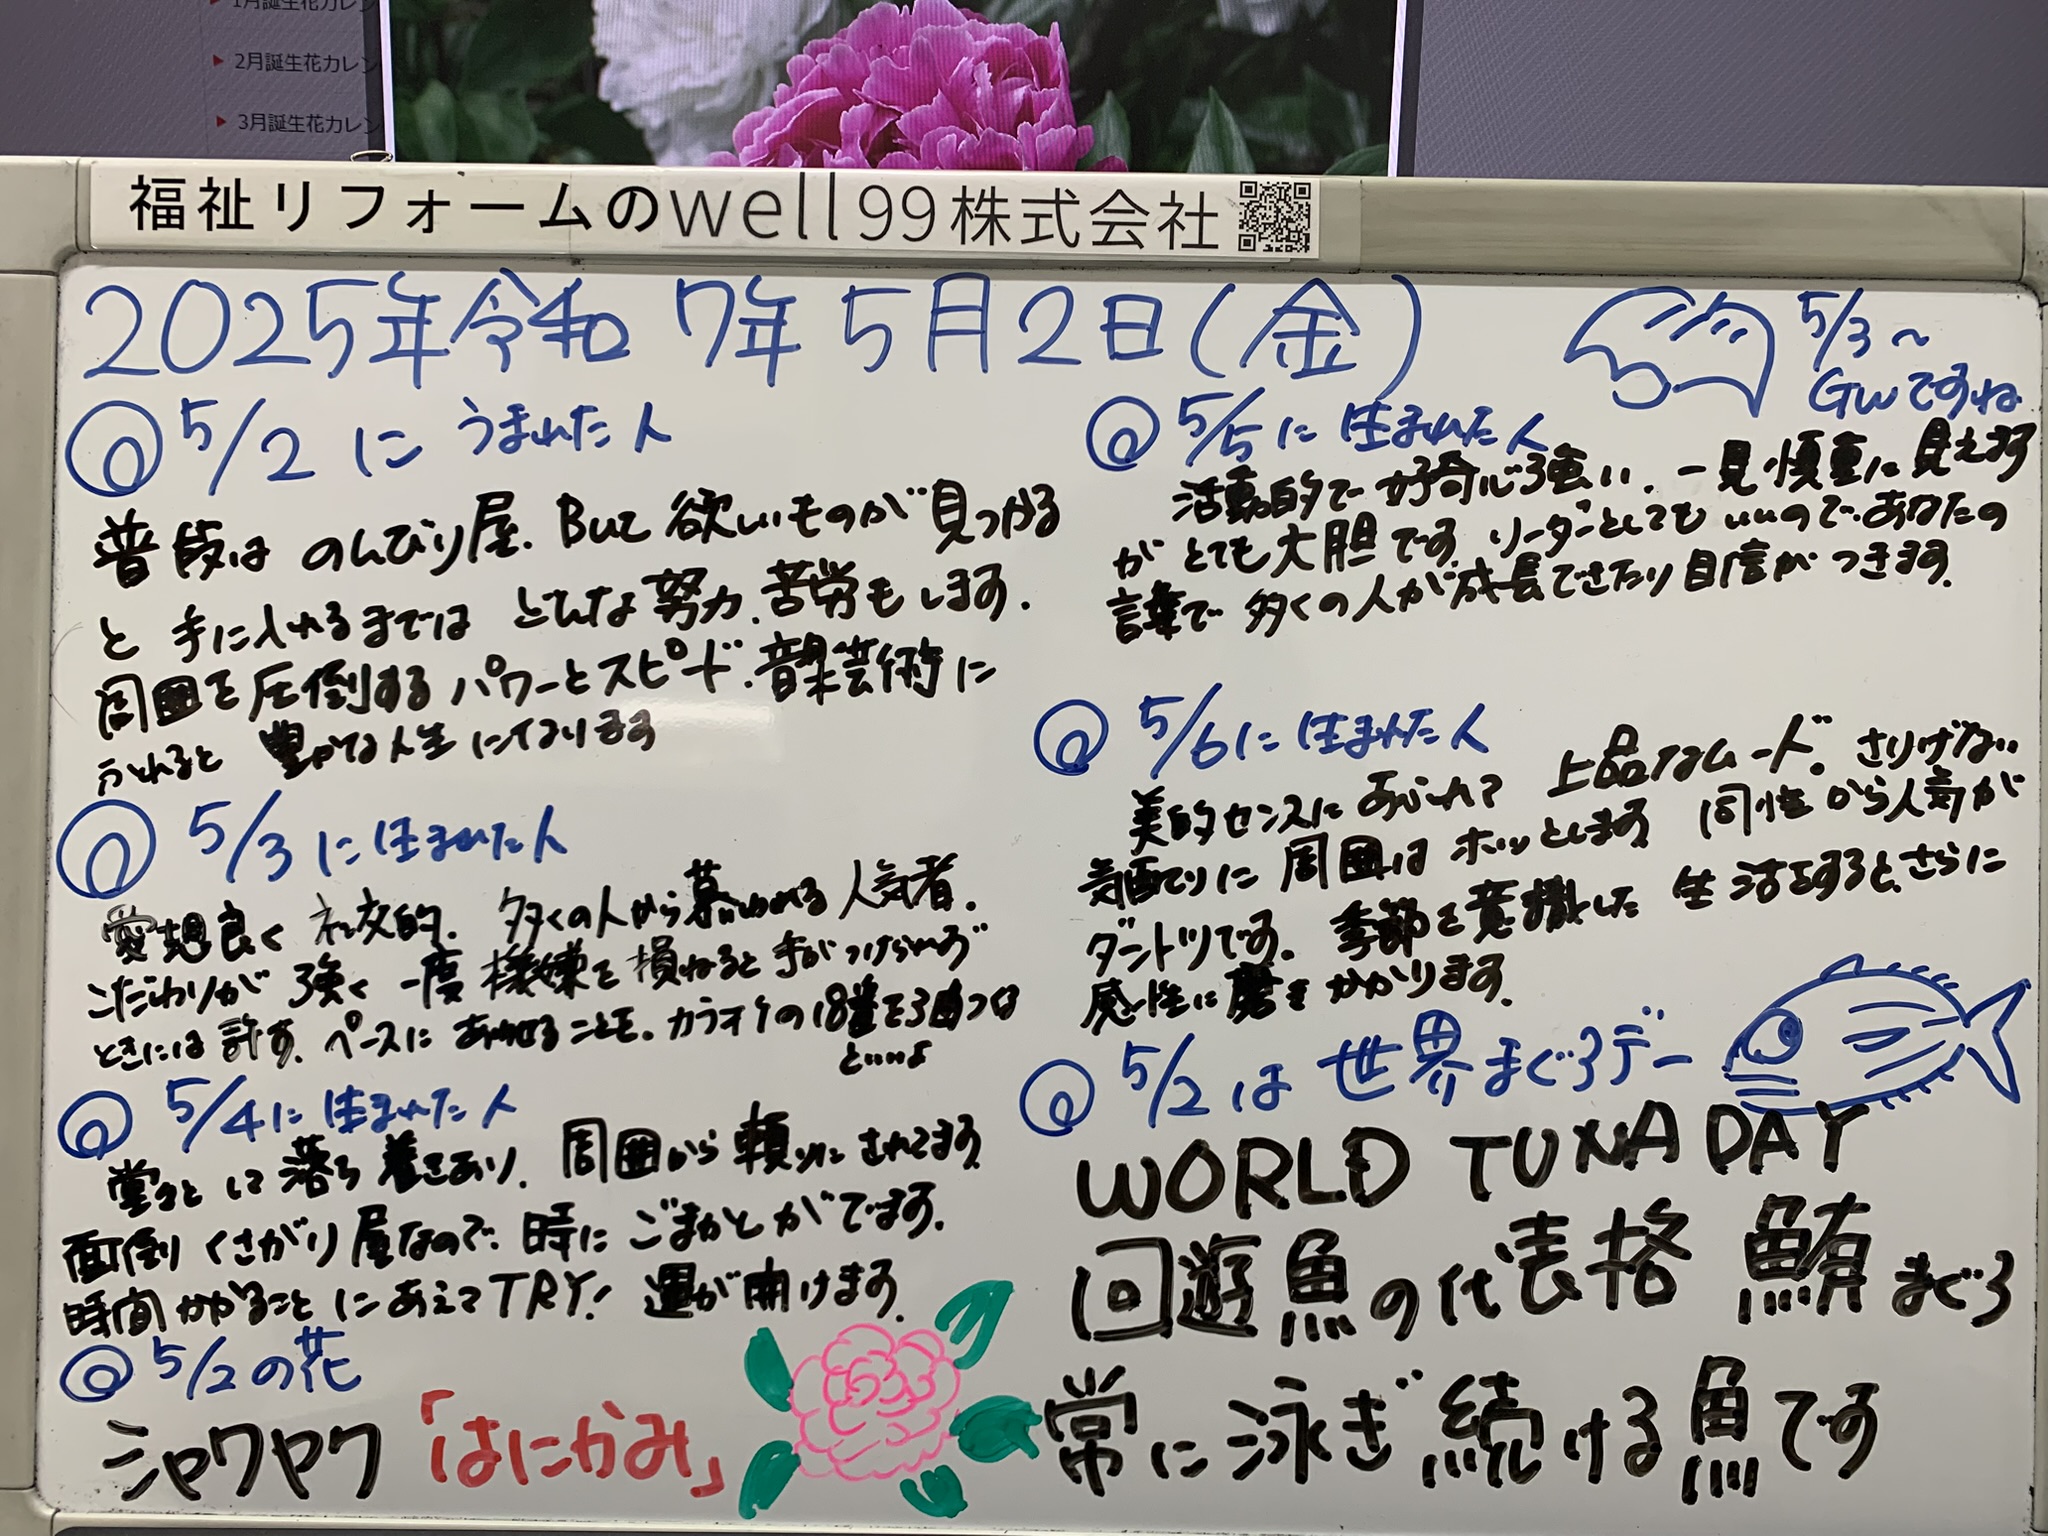 1月誕生花カレン
2月誕生花カレン
3月誕生花カレン
福祉リフォームのwell99株式会社
2025年令和7年5月2日(金)
5/3〜
GWですね
5/2にうまれた人
普段はのんびり屋.But欲しいものが見つかる
と手に入れるまではどんな努力.苦労もします.
周囲を圧倒するパワーとスピード.音楽芸術に
ふれると豊かな人生になります
5/3に生まれた人
愛想良く社交的.多くの人から慕われる人気者.
こだわりが強く一度機嫌を損ねると手がつけられず
ときには許す.ペースにあわせることも.カラオケの18番を3曲つは
と…よ
5/4に生まれた人
堂々として落ち着きあり.周囲から頼りにされてます.
面倒くさがり屋なので.時にごまかとがでます.
時間かかることにあえてTRY!運が開けます.
5/2の花
シャクヤク「はにかみ」
5/5に生まれた人
活動的で好奇心強い.一見慎重に見えます
がとても大胆です.リーダーとしてもいいので.あなたの
言葉で多くの人が成長できたり自信がつきます.
5/6に生まれた人
美的センスにあふれて上品なムード.さりげない
気配りに周囲はホッとします.同性から人気が
ダントツです.季節を意識した生活をすると、さらに
感性に磨きかかります.
5/2は世界まぐろデー
WORLD TUNA DAY
回遊魚の代表格鮪まぐろ
常に泳ぎ続ける魚です